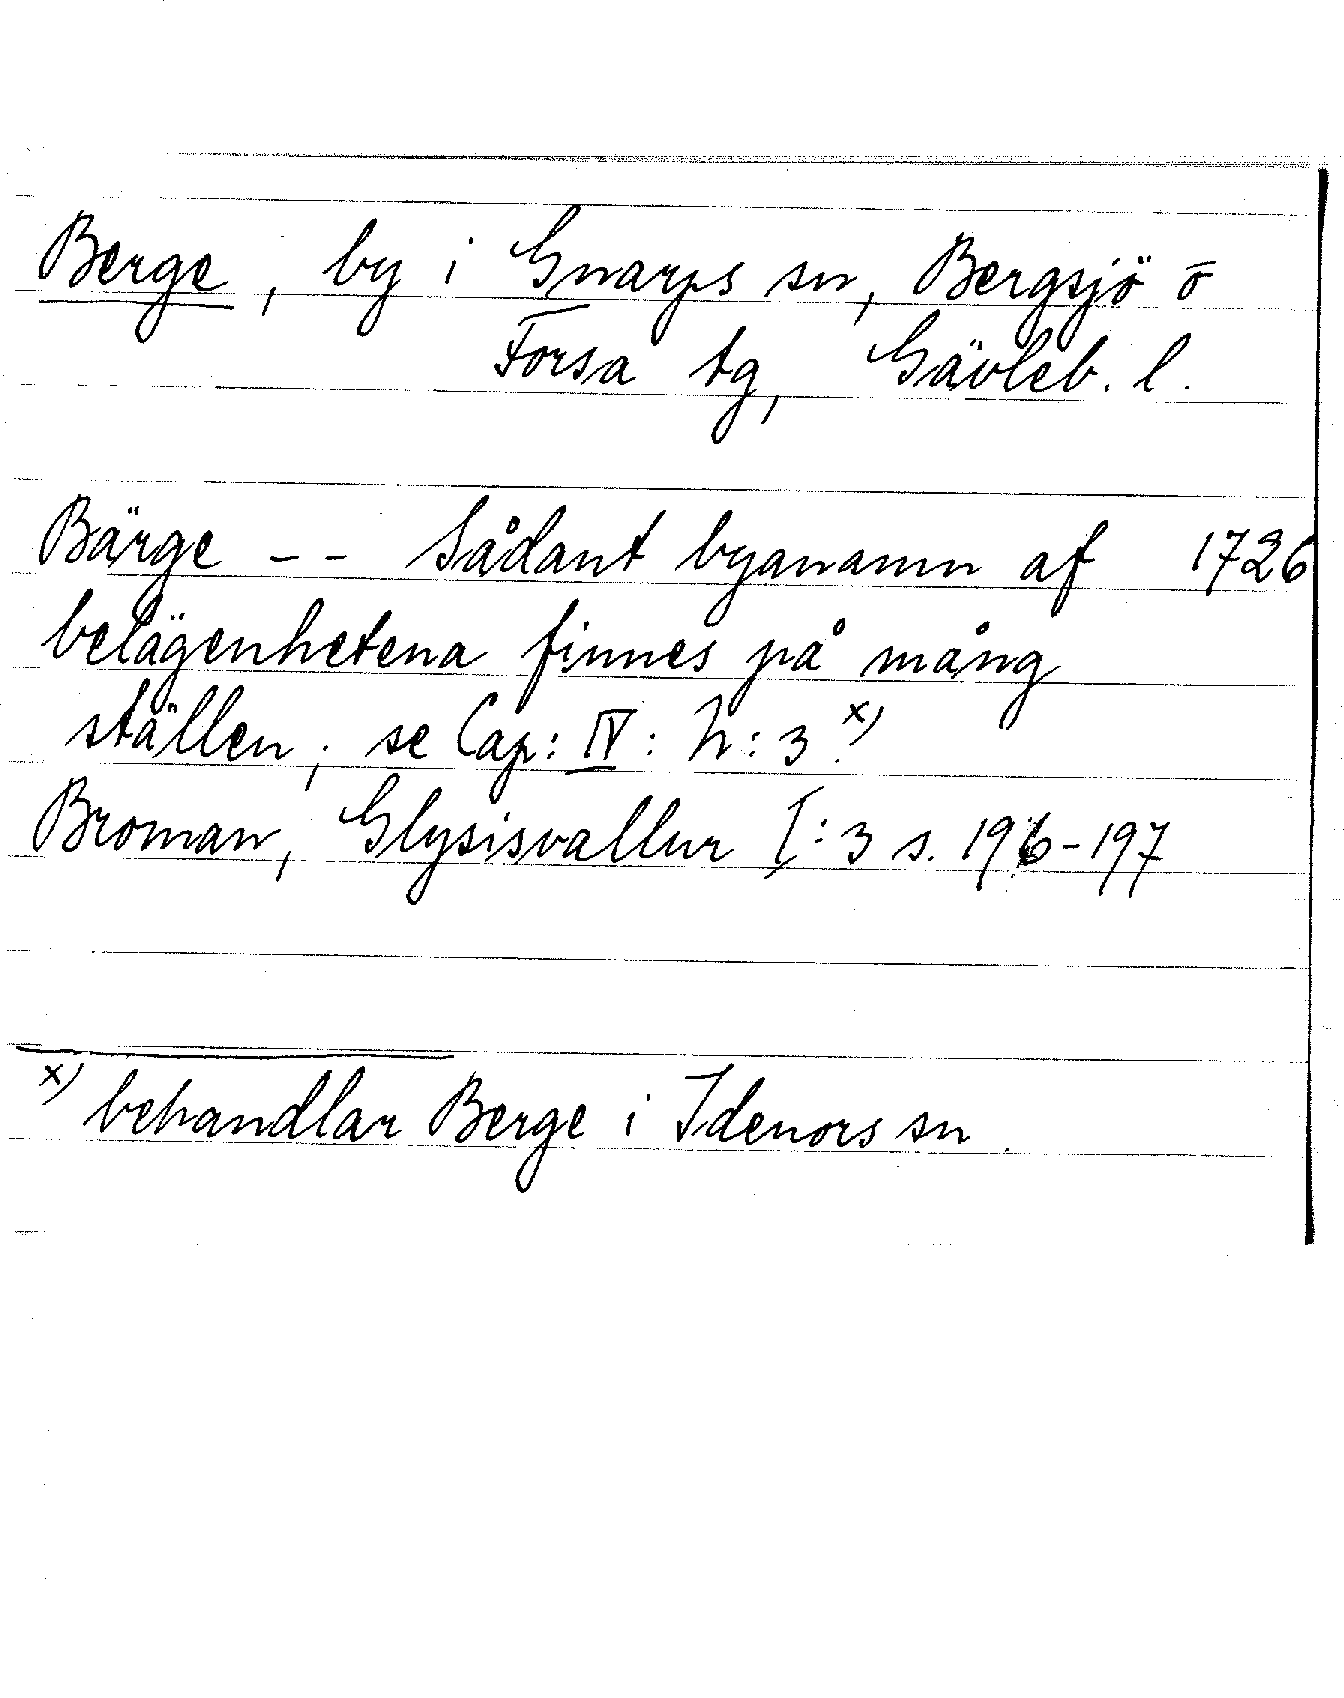 Berge, by i Gnarps sn, Bergsjö o
Forsa tg, Gävleb. l.
Bärge -- Sådant byanamn af 1726
belägenhetena finnes på mång
ställen; se Cap: IV: h: 3.x)
Broman, Glysisvallur I:3 s. 196-197
x) behandlar Berge i Idenors sn.